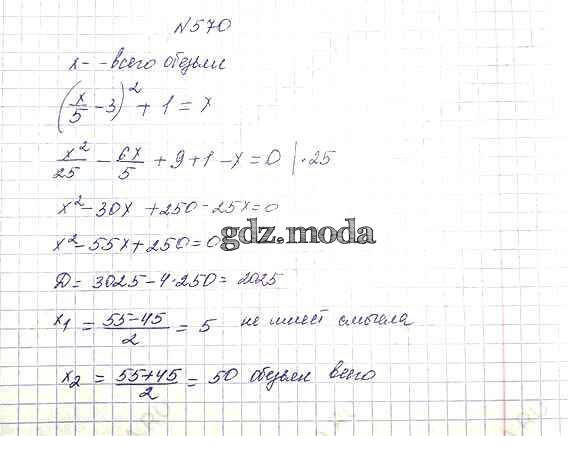 №570
x - - всего обезьян
(x/5 - 3)² + 1 = x
x²/25 - 6x/5 + 9 + 1 - x = 0 | · 25
x² - 30x + 250 - 25x = 0
x² - 55x + 250 = 0
gdz.moda
D = 3025 - 4 · 250 = 2025
x₁ = (55-45)/2 = 5 не имеет смысла
x₂ = (55+45)/2 = 50 обезьян всего